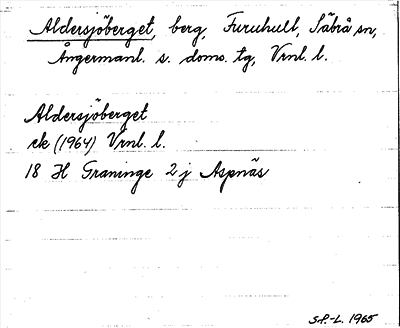 Aldersjöberget, berg, Furuhult, Säbrå sn,
Ångermanl. s. doms. tg, Vrnl. l.
Aldersjöberget
ek (1964) Vrnl. l.
18 H Graninge 2 j Aspnäs
S.P.-L. 1965